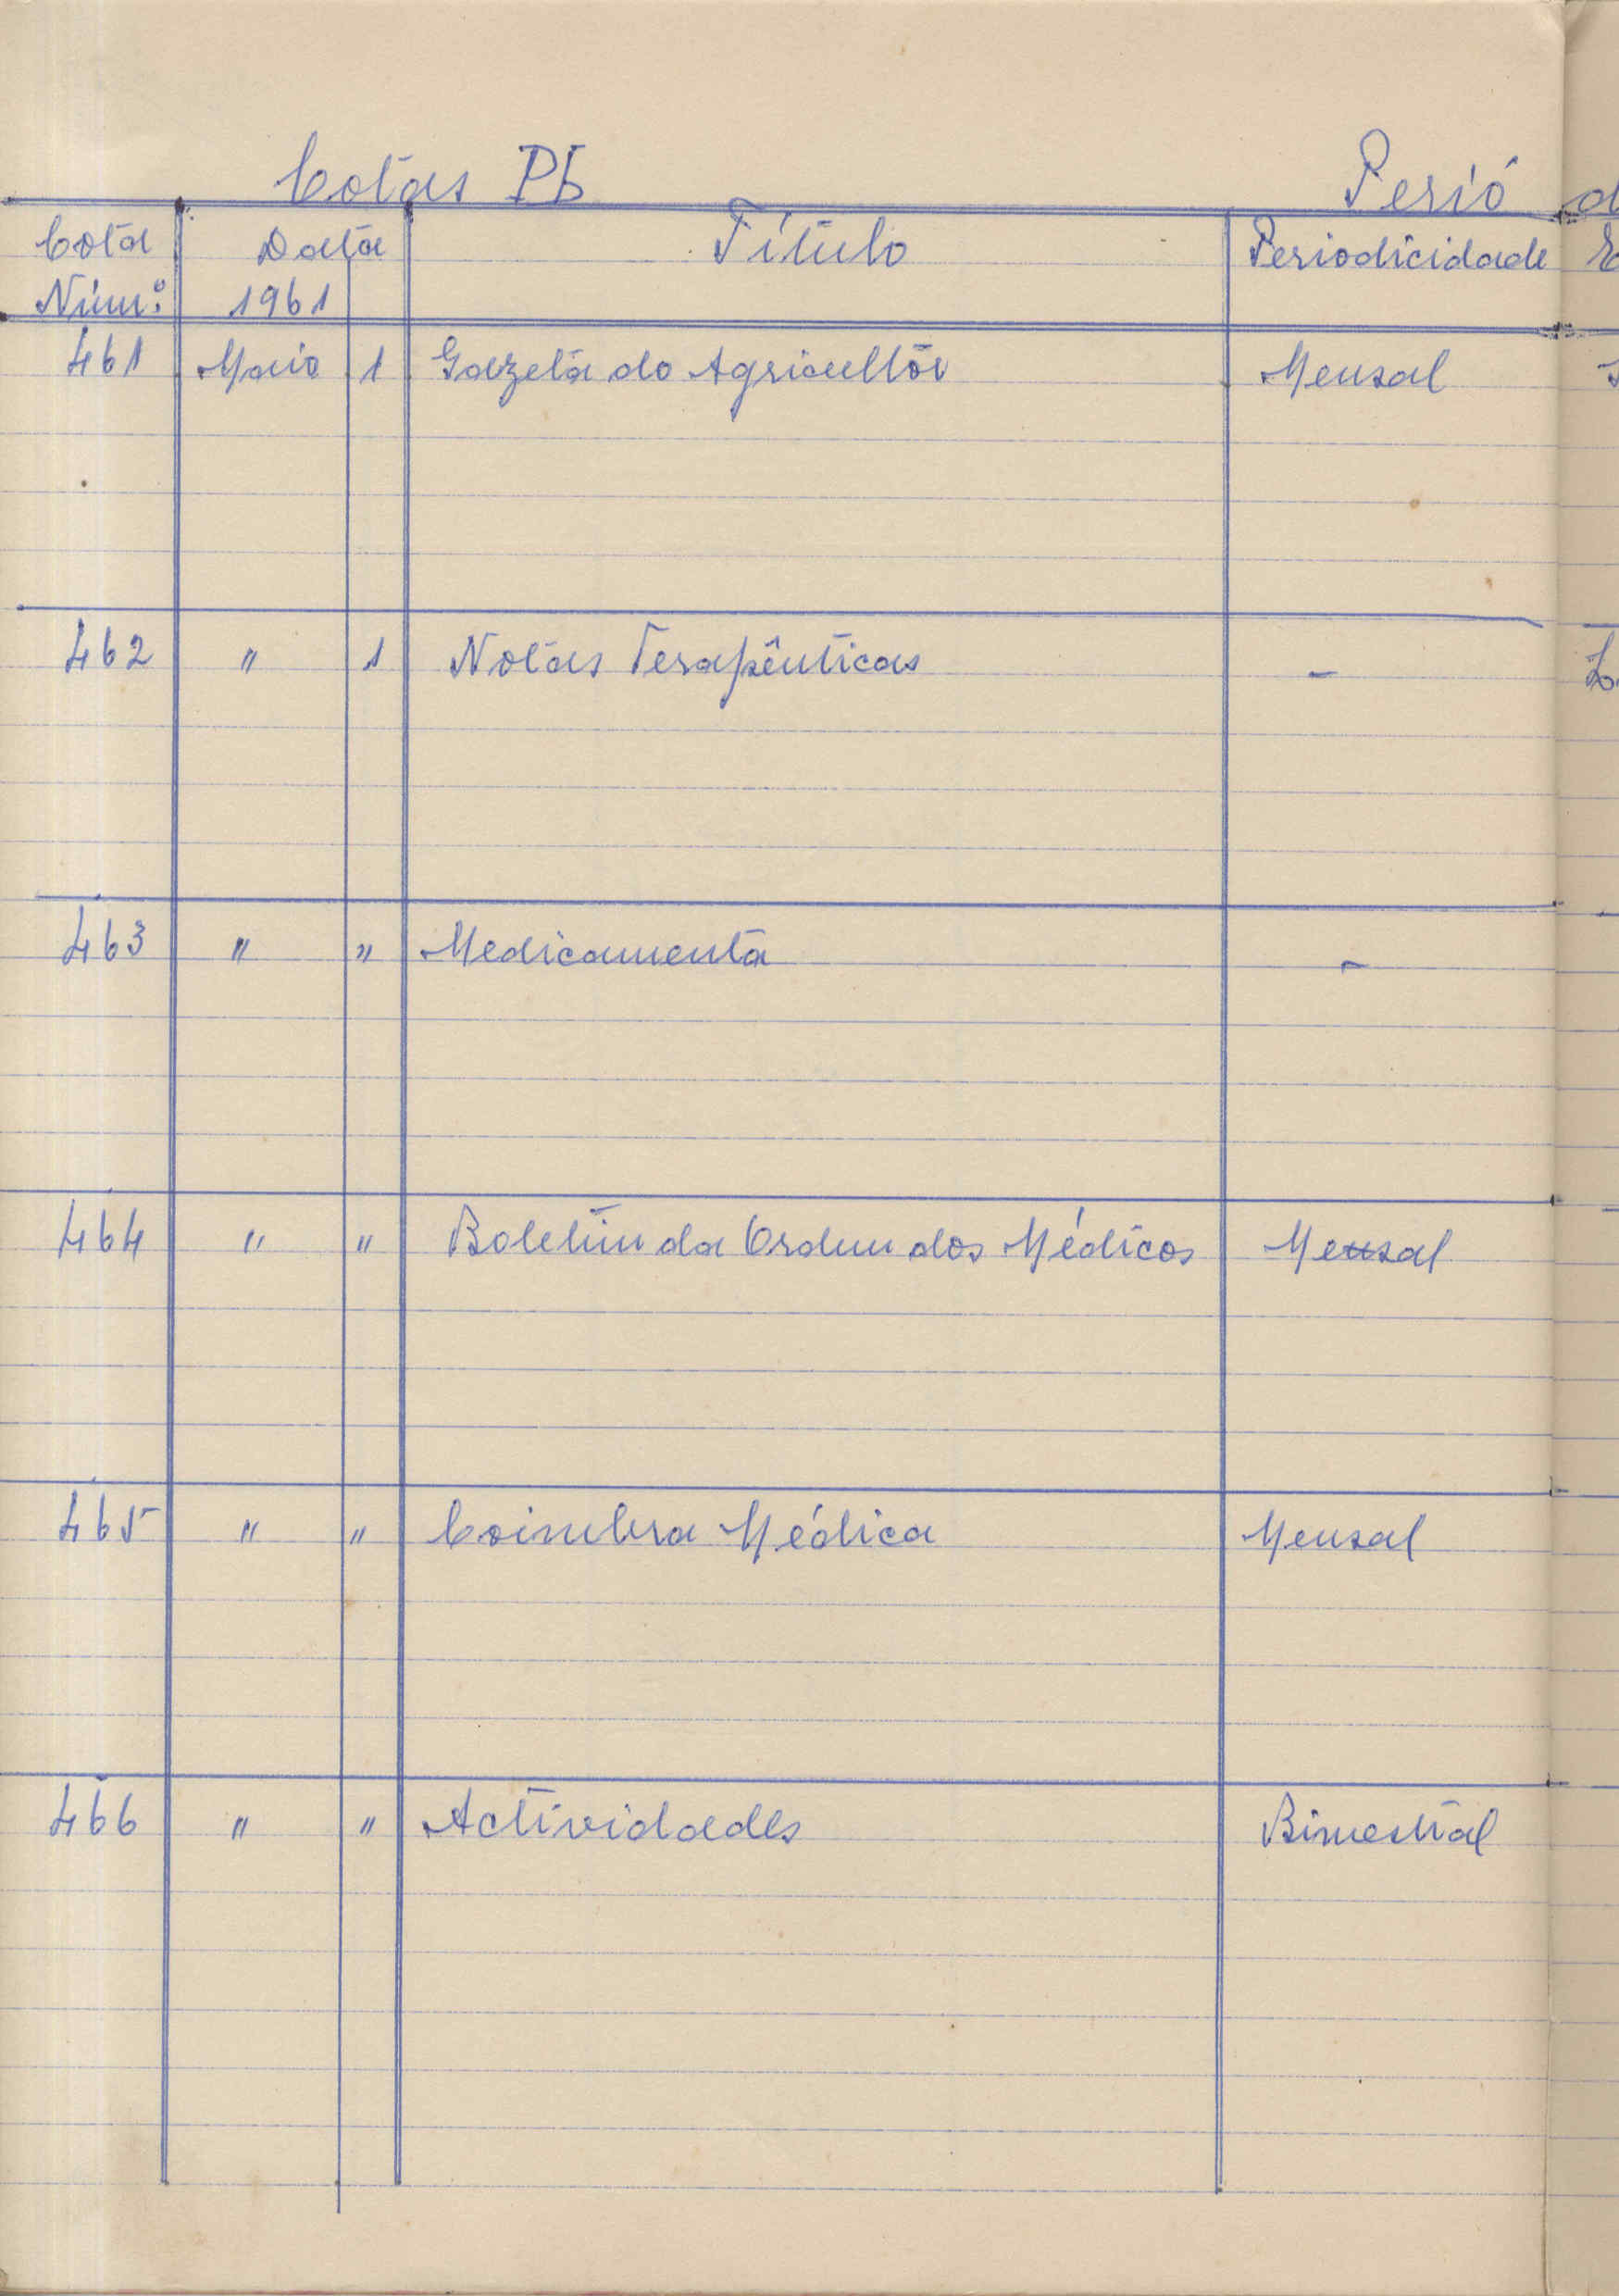 Cotas Pb Perió d
Cota Data Título Periodicidade E
Núm: 1961
461 Maio 1 Gazeta do Agricultor Mensal
462 " 1 Notas Terapêuticas - L
463 " " Medicamenta -
464 " " Boletim da Ordem dos Médicos Mensal
465 " " Coimbra Médica Mensal
466 " " Actividades Bimestral